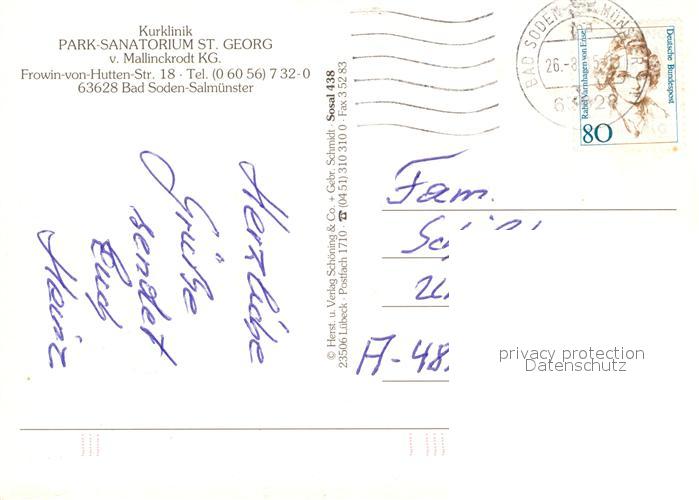 Kurklinik
PARK-SANATORIUM ST. GEORG
v. Mallinckrodt KG.
Frowin-von-Hutten-Str. 18 · Tel. (0 60 56) 7 32-0
63628 Bad Soden-Salmünster
Herzliche
Grüße
sendet
Euch
Heinz
© Herst. u. Verlag Schöning & Co. + Gebr. Schmidt · Sosal 438
23506 Lübeck · Postfach 1710 · ☎ (04 51) 310 310 0 · Fax 3 52 83
BAD SODEN-SALMÜNSTER
26.-8.
63628
Rahel Varnhagen von Ense
Deutsche Bundespost
80
Fam.
A-48
privacy protection
Datenschutz